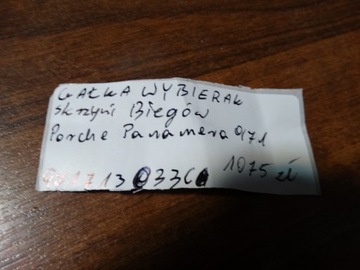 GAŁKA WYBIERAK
skrzyni Biegów
Porche Panamera 971
1075 zł